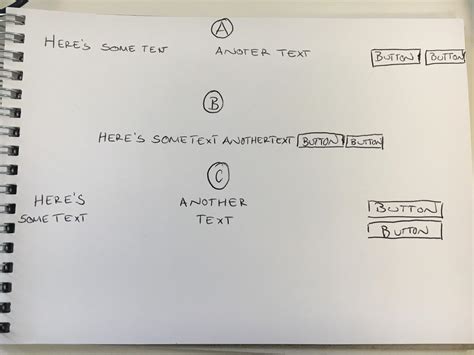 A
HERE'S SOME TEXT ANOTER TEXT BUTTON BUTTON
B
HERE'S SOMETEXT ANOTHERTEXT BUTTON BUTTON
C
HERE'S ANOTHER BUTTON
SOMETEXT TEXT BUTTON